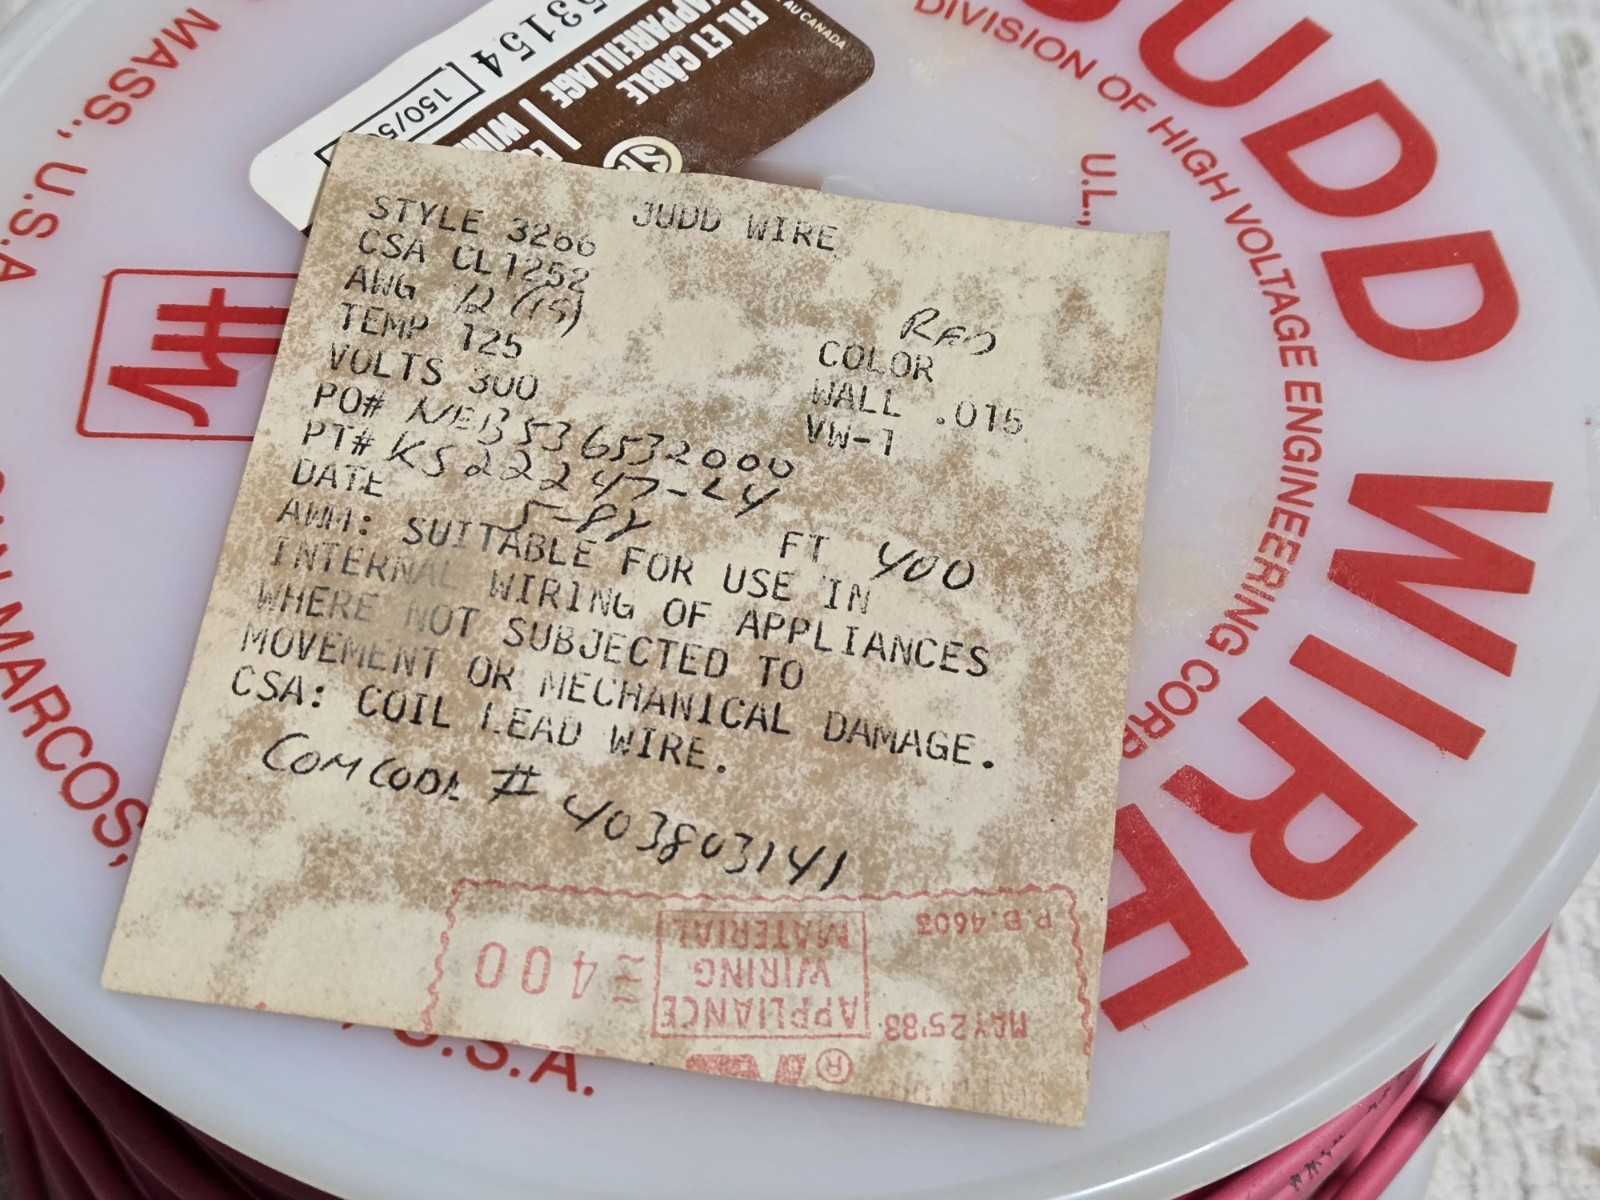 JUDD WIRE
DIVISION OF HIGH VOLTAGE ENGINEERING CORP.
U.L.,
MASS., U.S.A
SAN MARCOS,
U.S.A.
53154
150/
FIL ET CÂBLE
D'APPAREILLAGE
AU CANADA
STYLE 3266 JUDD WIRE
CSA CL1252
AWG 12 (19)
RED
TEMP 125 COLOR
VOLTS 300 WALL .015
PO# NEB536532000 VW-1
PT# KS22247-L4
DATE
FT 400
AWM: SUITABLE FOR USE IN
INTERNAL WIRING OF APPLIANCES
WHERE NOT SUBJECTED TO
MOVEMENT OR MECHANICAL DAMAGE.
CSA: COIL LEAD WIRE.
COMCODE # 403803141
MAY 25'88
APPLIANCE
WIRING
MATERIAL
≡400
P.B. 4603